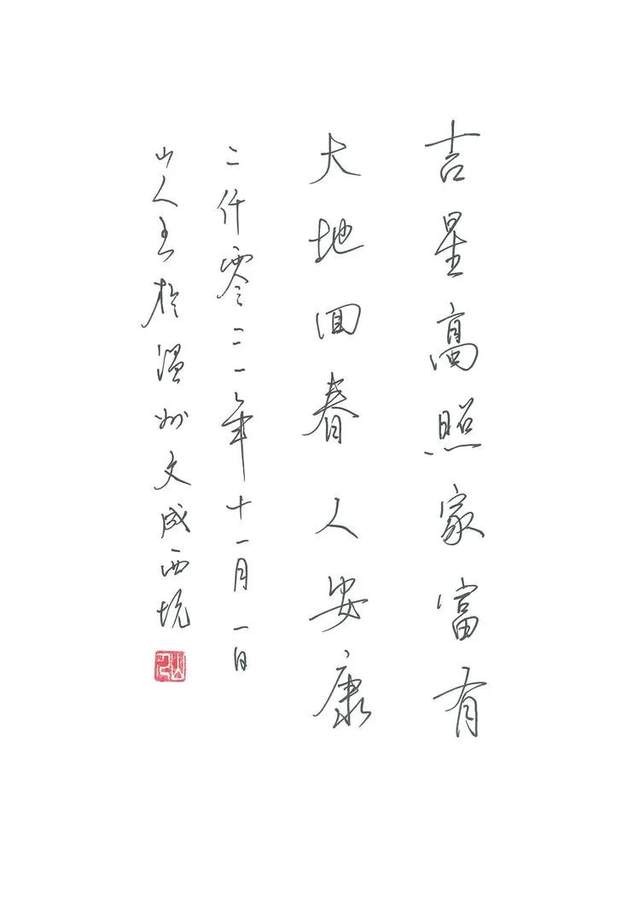 吉星高照家富有
大地回春人安康
二仟零二一年十一月一日
山人書於温州文成西坑
山人